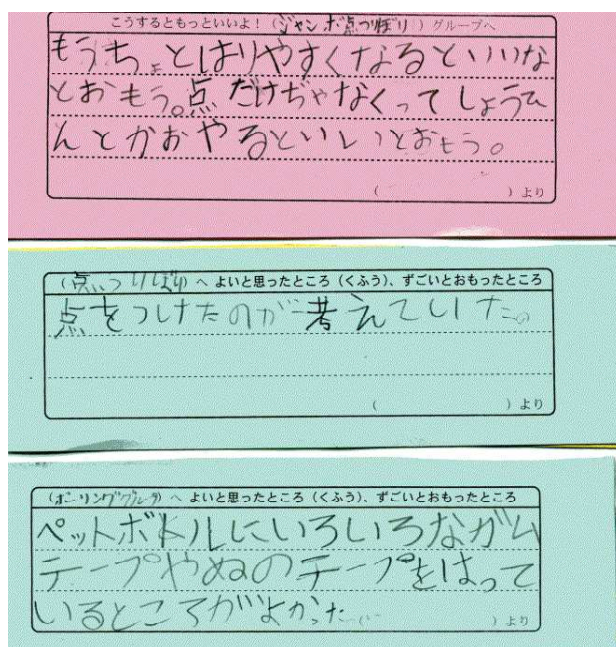 こうするともっといいよ！（ジャンボ点つりぼり）グループへ
もうちょとはりやすくなるといいな
とおもう。点だけぢゃなくってしょうひ
んとかおやるといいとおもう。
（　　　）より
（点つりぼり）へ よいと思ったところ（くふう）、ずごいとおもったところ
点をつけたのが考えていた。
（　　　）より
（ボーリンググループ）へ よいと思ったところ（くふう）、ずごいとおもったところ
ペットボトルにいろいろながム
テープやぬのテープをはって
いるところがよかった
（　　　）より